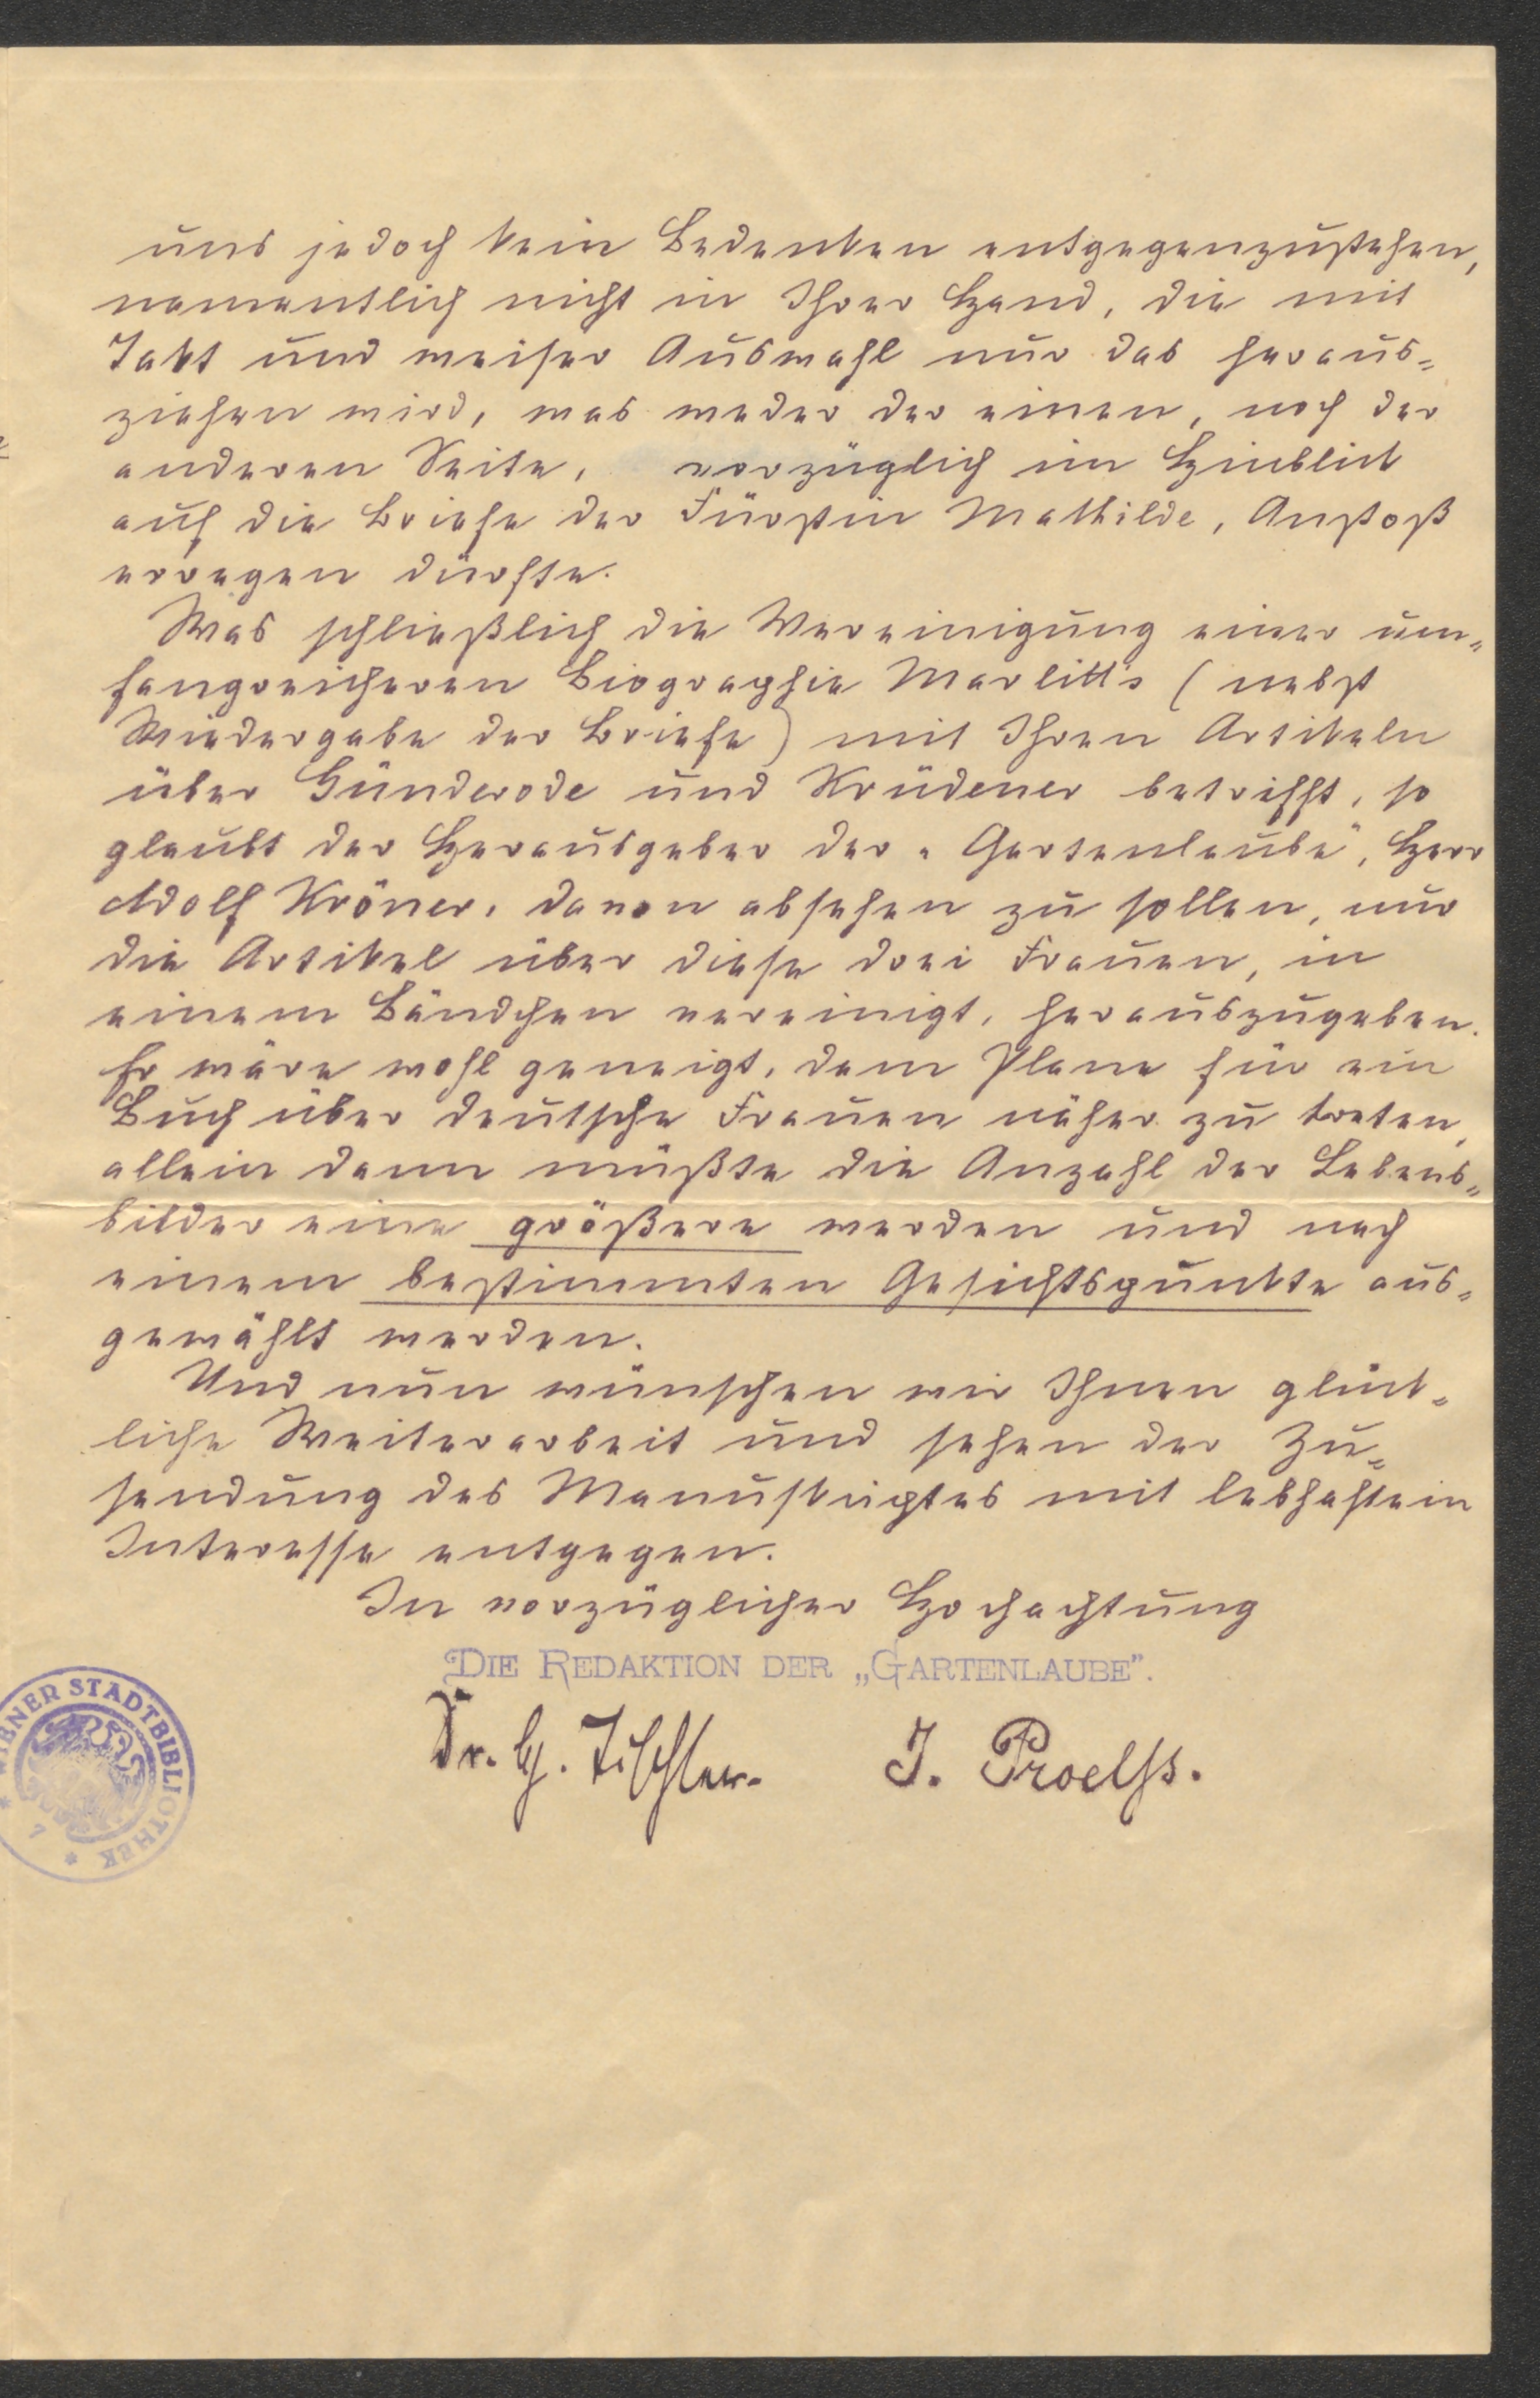 uns jedoch kein Bedenken entgegenzustehen,
namentlich nicht in Ihrer Hand, die mit
Takt und weiser Auswahl nur das heraus-
ziehen wird, was weder der einen, noch der
anderen Seite, vorzüglich im Hinblick
auf die Briefe der Fürstin Mathilde, Anstoß
erregen dürfte.
Was schließlich die Vereinigung einer um-
fangreicheren Biographie Marlitt's (nebst
Wiedergabe der Briefe) mit Ihren Artikeln
über Günderode und Krüdener betrifft, so
glaubt der Herausgeber der „Gartenlaube", Herr
Adolf Kröner, davon absehen zu sollen, nur
die Artikel über diese drei Frauen, in
einem Bändchen vereinigt, herauszugeben.
Er wäre wohl geneigt, dem Plane für ein
Buch über deutsche Frauen näher zu treten,
allein dann müßte die Anzahl der Lebens-
bilder eine größere werden und nach
einem bestimmten Gesichtspunkte aus-
gewählt werden.
Und nun wünschen wir Ihnen glück-
liche Weiterarbeit und sehen der Zu-
sendung des Manuskriptes mit lebhaftem
Interesse entgegen.
In vorzüglicher Hochachtung
DIE REDAKTION DER „GARTENLAUBE".
Dr. H. Tischler. J. Proelss.
WIENER STADTBIBLIOTHEK